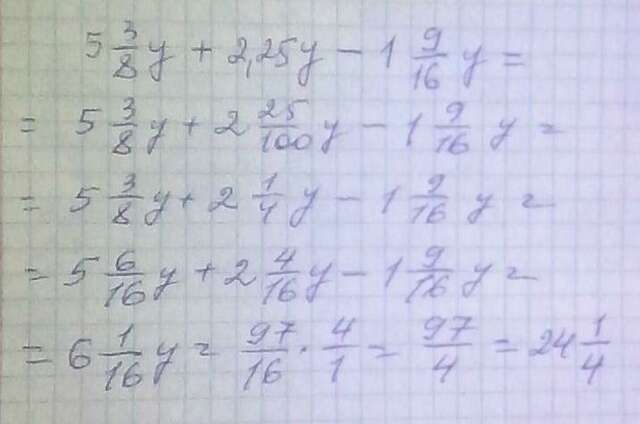 5 3/8 y + 2,25y - 1 9/16 y =
= 5 3/8 y + 2 25/100 y - 1 9/16 y =
= 5 3/8 y + 2 1/4 y - 1 9/16 y =
= 5 6/16 y + 2 4/16 y - 1 9/16 y =
= 6 1/16 y = 97/16 · 4/1 = 97/4 = 24 1/4